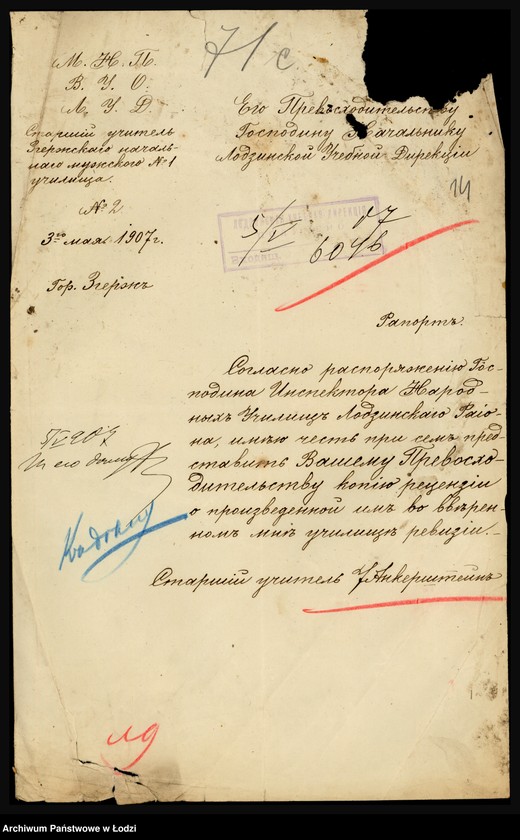 71 с.
М. Н. П.
В. У. О.
Л. У. Д.
Старшій учитель
Згержскаго началь-
наго мужского №1
училища.
№ 2
3го мая 1907 г.
Гор. Згержъ
Его Превосходительству
Господину Начальнику
Лодзинской Учебной Дирекціи
14
5/V 07
6046
Рапортъ.
Согласно распоряженію Гос-
подина Инспектора Народ-
ныхъ Училищъ Лодзинскаго Райо-
на, имѣю честь при семъ пред-
ставить Вашему Превосхо-
дительству копію рецензіи
о произведенной имъ во ввѣрен-
номъ мнѣ училищѣ ревизіи.
Старшій учитель Анкерштейнъ
5/V 907
Къ его делу
Archiwum Państwowe w Łodzi